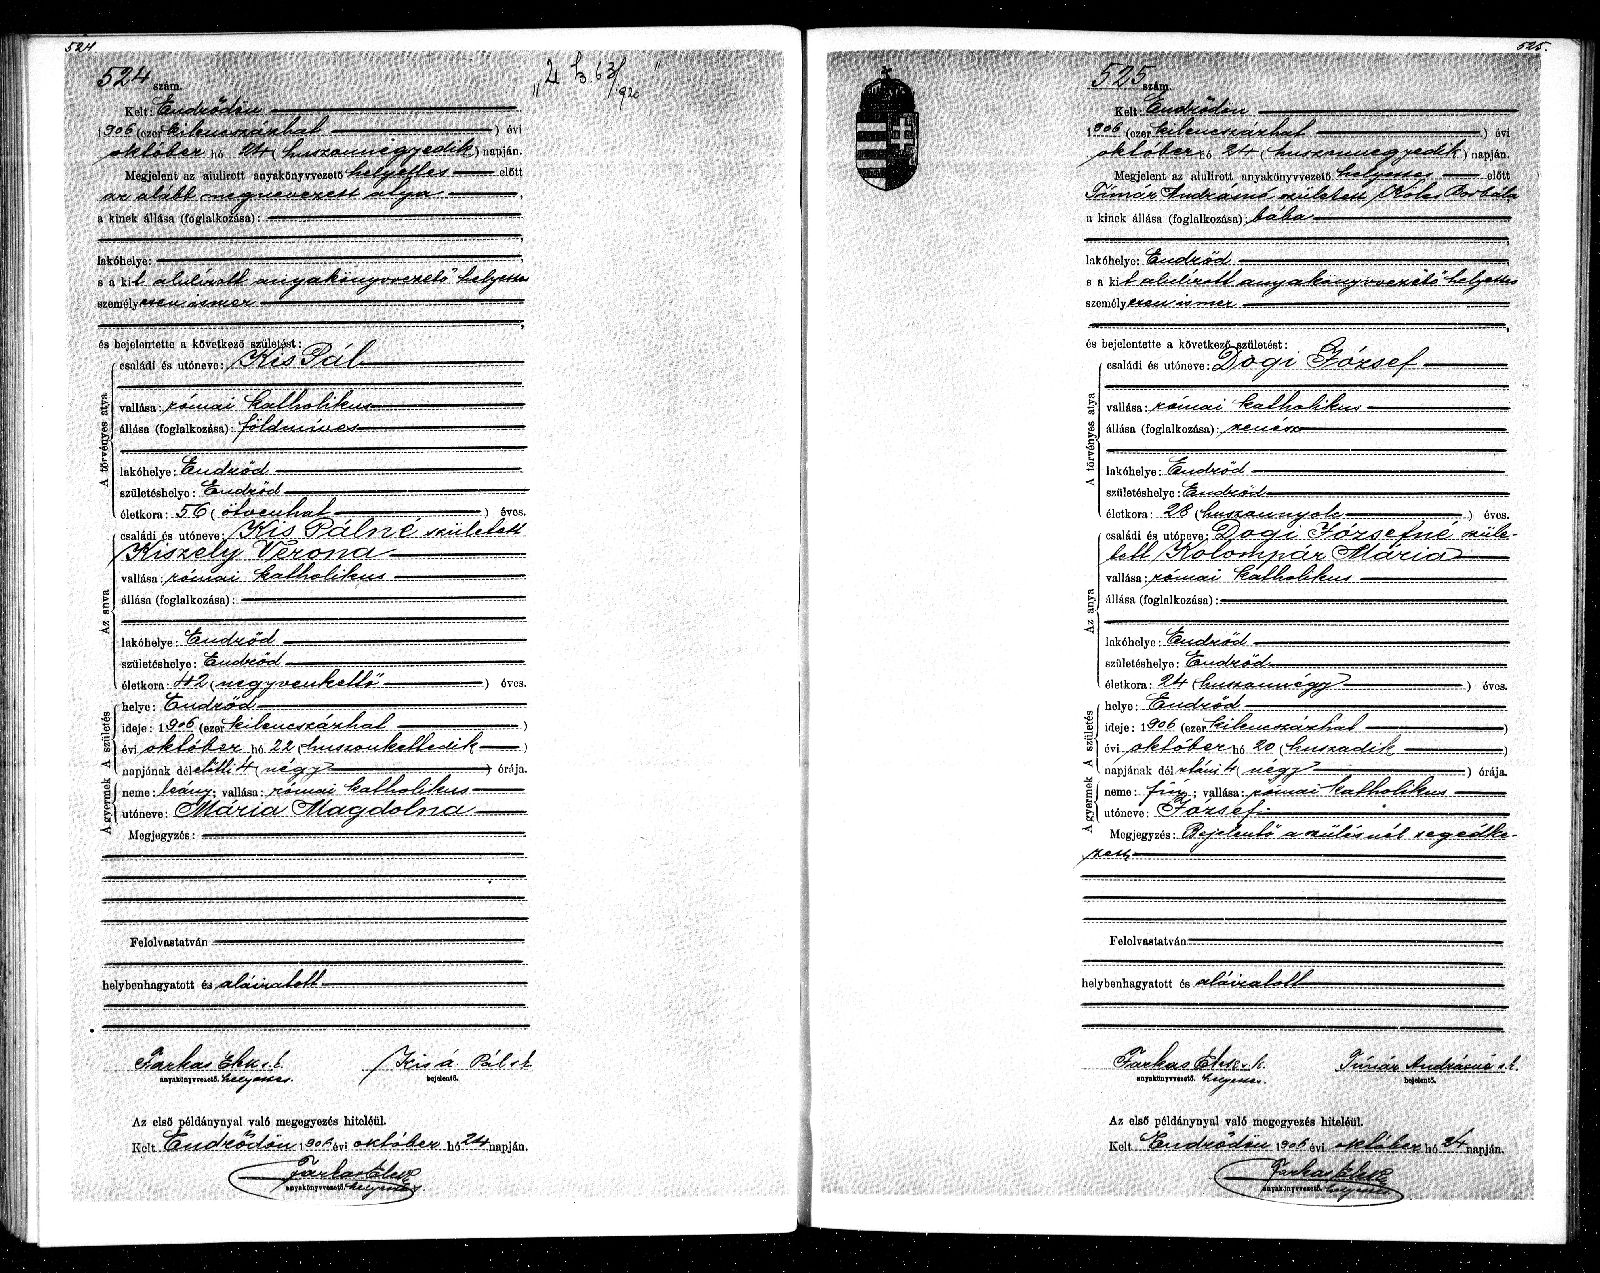 524.
524 szám.
Kelt: Endrődön
1906 (ezer kilencszázhat ) évi
október hó 24 (huszonnegyedik) napján.
Megjelent az alulirott anyakönyvvezető helyettes előtt
az alább megnevezett atya ,
a kinek állása (foglalkozása):
lakóhelye:
s a kit alulírott anyakönyvvezető helyettes
személyesen ismer
és bejelentette a következő születést:
A törvényes atya
családi és utóneve: Kis Pál
vallása: római katholikus
állása (foglalkozása): földmíves
lakóhelye: Endrőd
születéshelye: Endrőd
életkora: 56 (ötvenhat ) éves.
Az anya
családi és utóneve: Kis Pálné született
Kiszely Verona
vallása: római katholikus
állása (foglalkozása):
lakóhelye: Endrőd
születéshelye: Endrőd
életkora: 42 (negyvenkettő ) éves.
A születés
helye: Endrőd
ideje: 1906 (ezer kilencszázhat )
évi október hó 22 (huszonkettedik )
napjának délelőtti 4 (négy ) órája.
A gyermek
neme: leány; vallása: római katholikus
utóneve: Mária Magdolna
Megjegyzés:
Felolvastatván
helybenhagyatott és aláíratott
Farkas Elek s. k. Kis á Pál s. k.
anyakönyvvezető. helyettes. bejelentő.
Az első példánynyal való megegyezés hiteléül.
Kelt Endrődön 1906 évi október hó 24 napján.
Farkas Elek
anyakönyvvezető. helyettes.
525.
525 szám.
Kelt: Endrődön
1906 (ezer kilencszázhat ) évi
október hó 24 (huszonnegyedik) napján.
Megjelent az alulirott anyakönyvvezető helyettes előtt
Tímár Andrásné született Borbála
a kinek állása (foglalkozása): bába
lakóhelye: Endrőd
s a kit alulírott anyakönyvvezető helyettes
személyesen ismer
és bejelentette a következő születést:
A törvényes atya
családi és utóneve: Dogi József
vallása: római katholikus
állása (foglalkozása): zenész
lakóhelye: Endrőd
születéshelye: Endrőd
életkora: 28 (huszonnyolc ) éves.
Az anya
családi és utóneve: Dogi Józsefné szüle-
tett Kolompár Mária
vallása: római katholikus
állása (foglalkozása):
lakóhelye: Endrőd
születéshelye: Endrőd
életkora: 24 (huszonnégy ) éves.
A születés
helye: Endrőd
ideje: 1906 (ezer kilencszázhat )
évi október hó 20 (huszadik )
napjának délutáni 4 (négy ) órája.
A gyermek
neme: fiú; vallása: római katholikus
utóneve: József
Megjegyzés: Bejelentő a szülésnél segédke-
zett.
Felolvastatván
helybenhagyatott és aláíratott
Farkas Elek s. k. Tímár Andrásné s. k.
anyakönyvvezető. helyettes. bejelentő.
Az első példánynyal való megegyezés hiteléül.
Kelt Endrődön 1906 évi október hó 24 napján.
Farkas Elek
anyakönyvvezető. helyettes